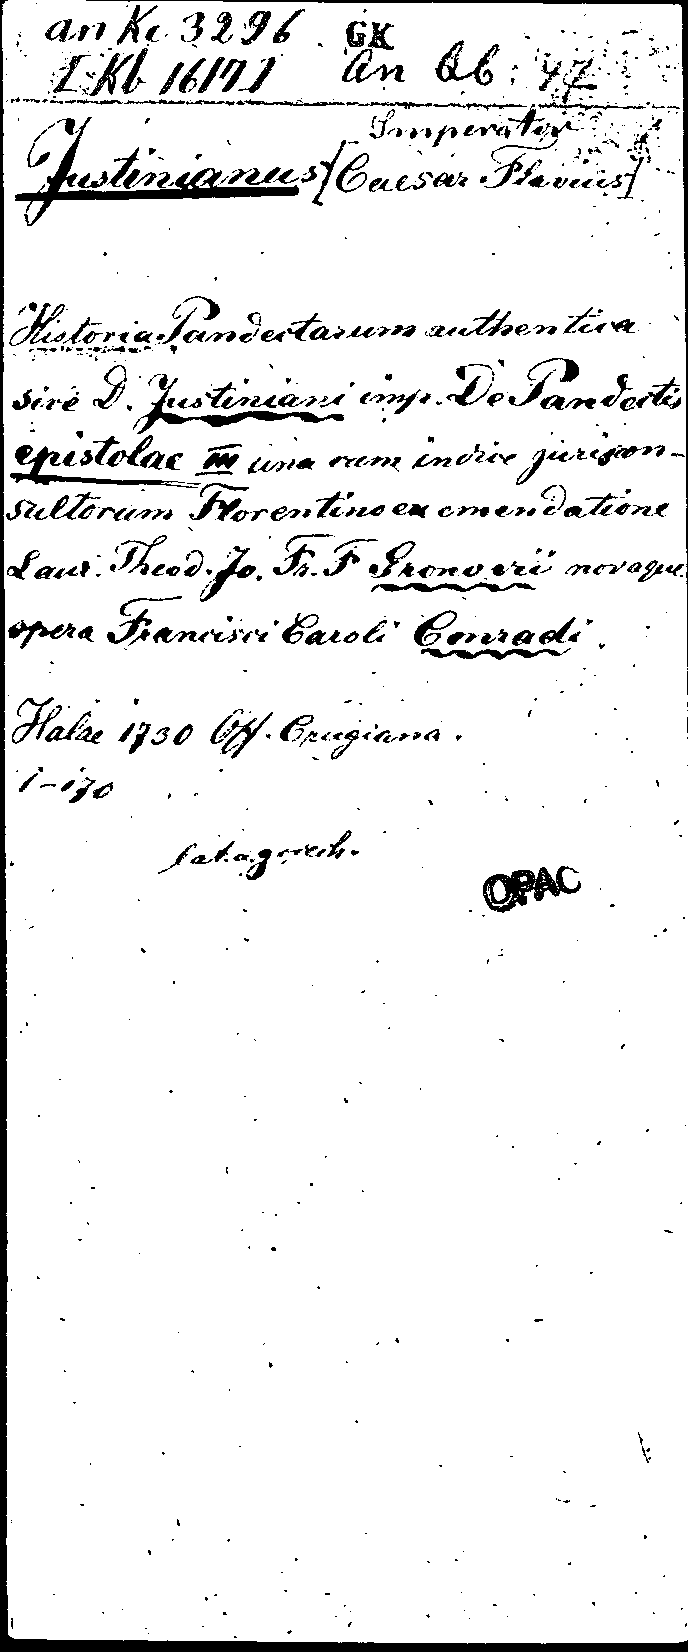 an Kc 3296 GK
[Kb 1617] An Qb 47
Imperator
Justinianus [Caesar Flavius]
Historia Pandectarum authentica
sive D. Justiniani imp. De Pandectis
epistolae III una cum indice juriscon-
sultorum Florentino ex emendatione
Laur. Theod. Jo. Fr. F Gronovii novaque
opera Francisci Caroli Conradi.
Halae 1730 Off. Crugiana.
1-170
lat. a. griech.
OPAC